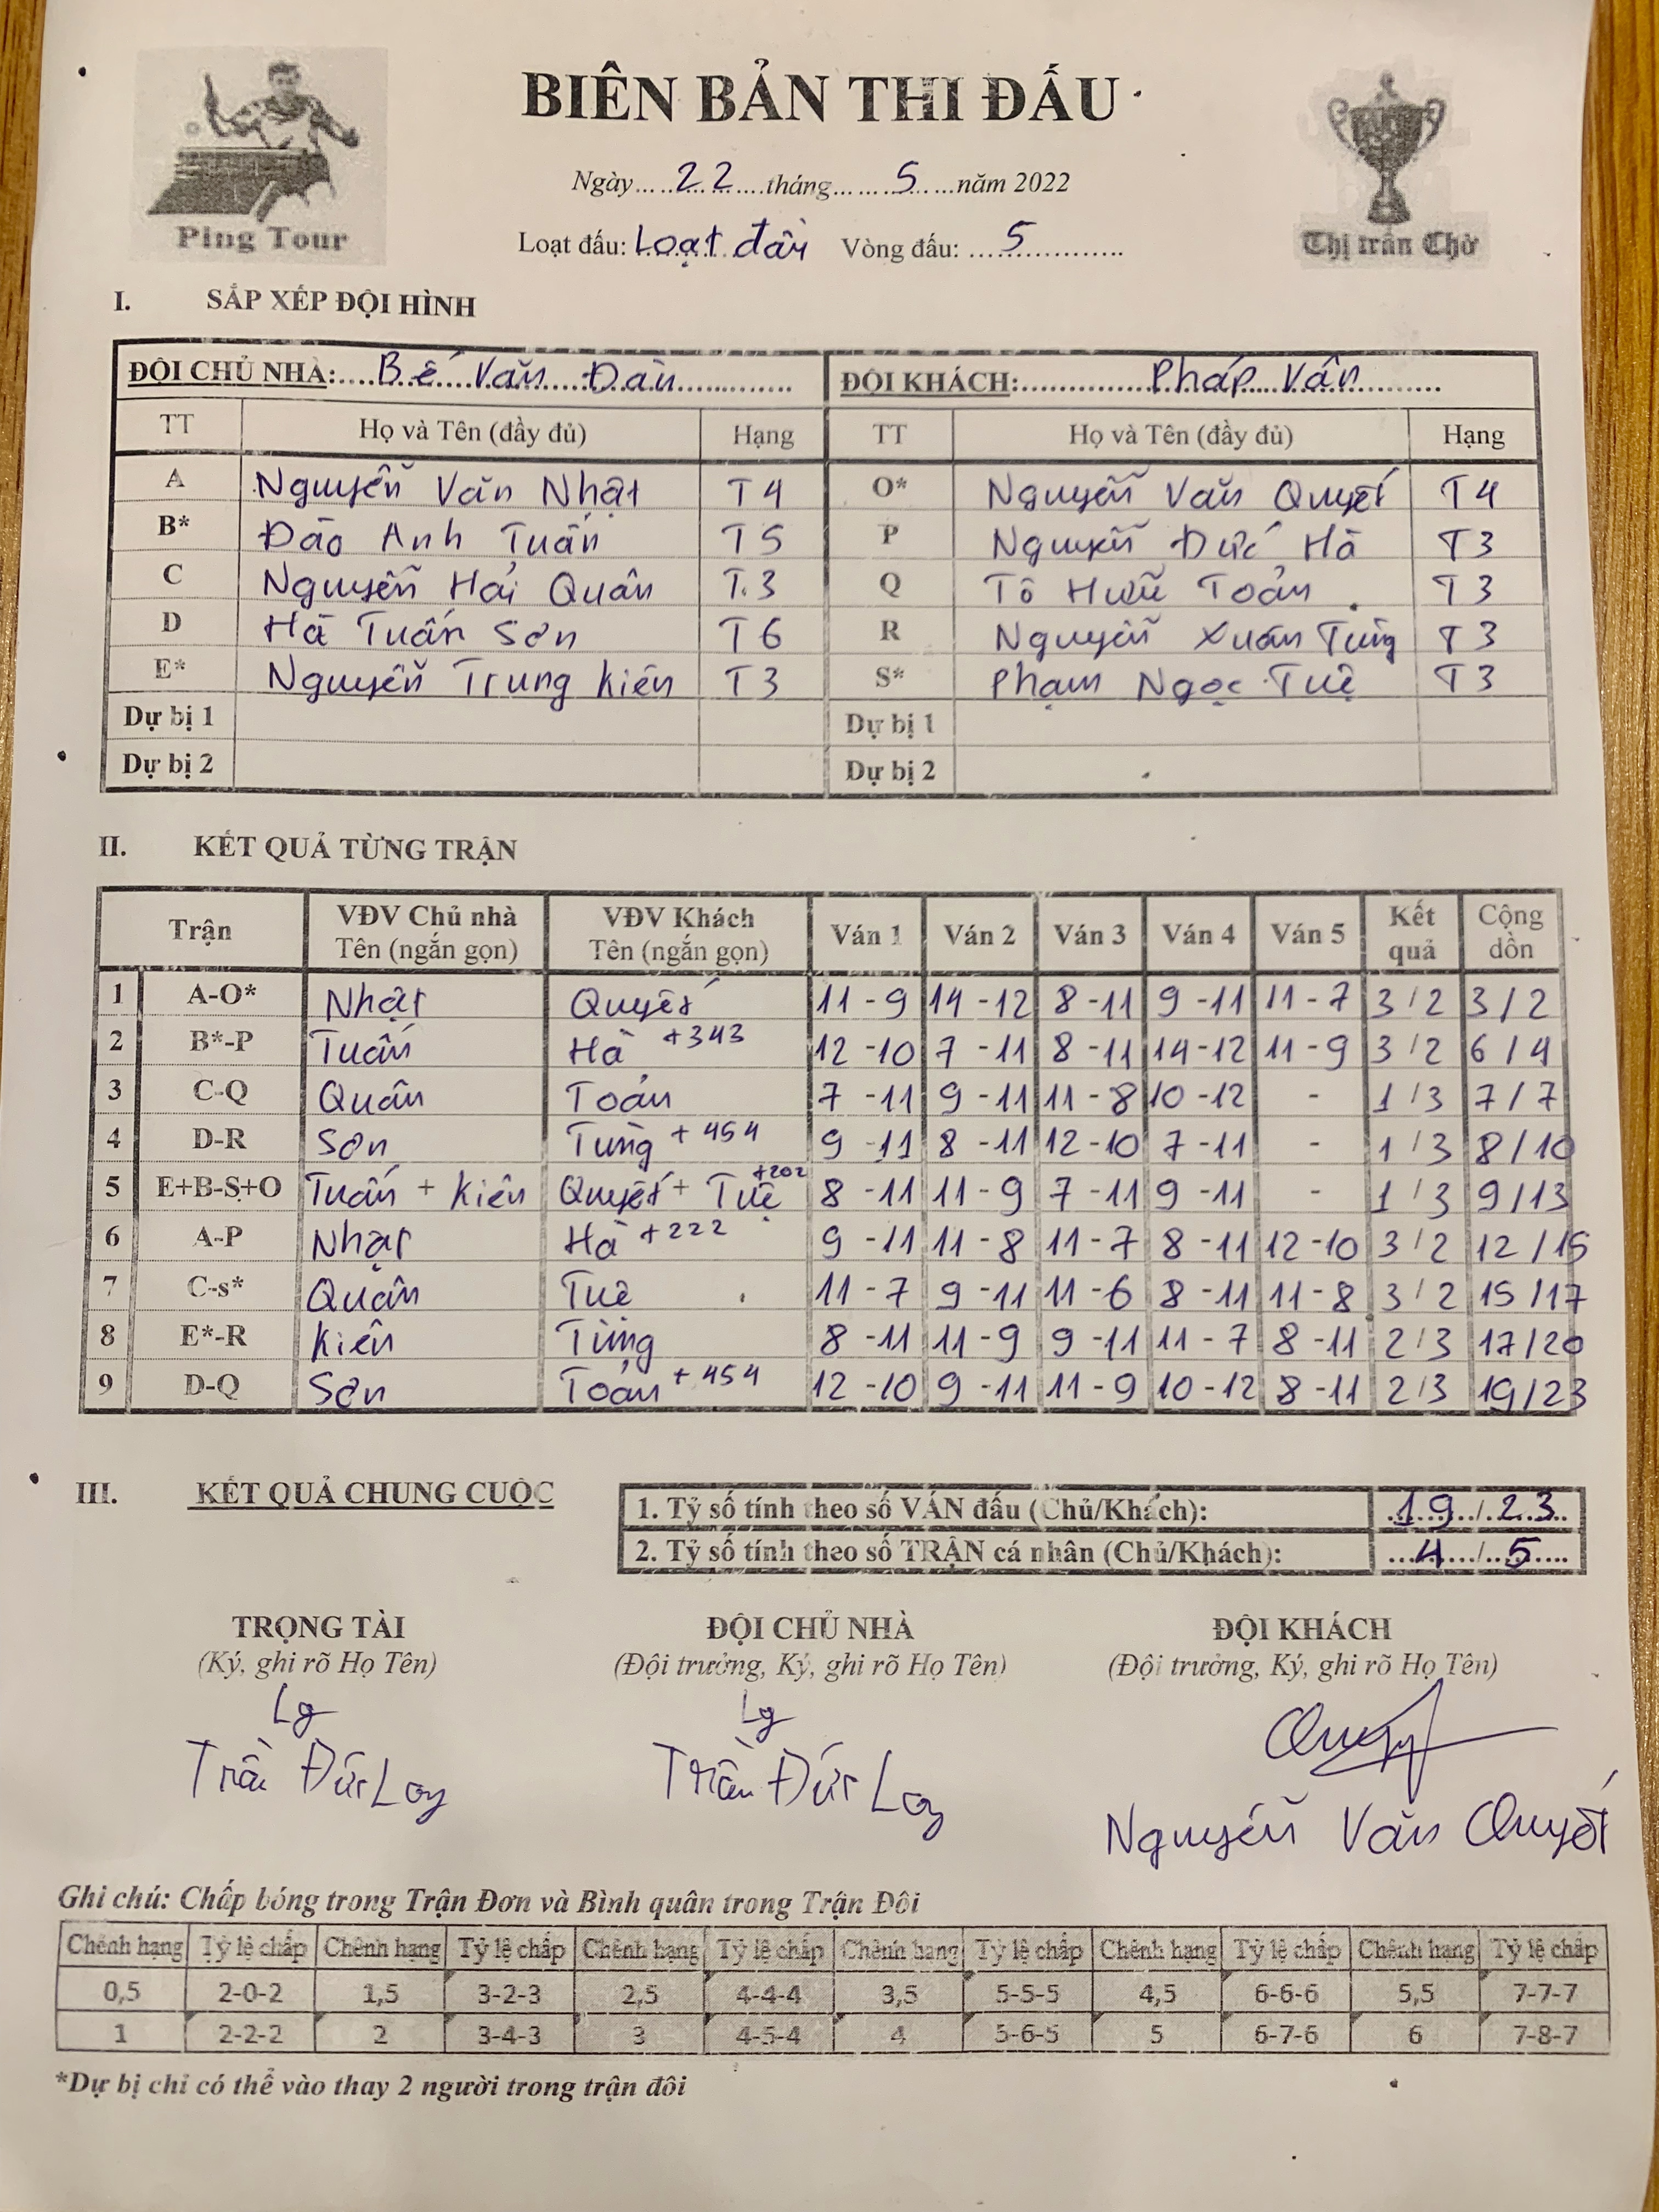 BIÊN BẢN THI ĐẤU
Ngày........22.....tháng........5......năm 2022
Loạt đấu: Loạt đấu Vòng đấu: ....5..............
Ping Tour
Thị trấn Chờ
I. SẮP XẾP ĐỘI HÌNH
ĐỘI CHỦ NHÀ: Bế Văn Đàn ĐỘI KHÁCH: Pháp Vân
TT Họ và Tên (đầy đủ) Hạng TT Họ và Tên (đầy đủ) Hạng
A Nguyễn Văn Nhật T4 O* Nguyễn Văn Quyết T4
B* Đào Anh Tuấn T5 P Nguyễn Đức Hà T3
C Nguyễn Hải Quân T.3 Q Tô Hữu Toản T3
D Hà Tuấn Sơn T6 R Nguyễn Xuân Tùng T3
E* Nguyễn Trung Kiên T3 S* Phạm Ngọc Tuệ T3
Dự bị 1 Dự bị 1
Dự bị 2 Dự bị 2
II. KẾT QUẢ TỪNG TRẬN
Trận VĐV Chủ nhà Tên (ngắn gọn) VĐV Khách Tên (ngắn gọn) Ván 1 Ván 2 Ván 3 Ván 4 Ván 5 Kết quả Cộng dồn
1 A-O* Nhật Quyết 11-9 14-12 8-11 9-11 11-7 3/2 3/2
2 B*-P Tuấn Hà +343 12-10 7-11 8-11 14-12 11-9 3/2 6/4
3 C-Q Quân Toản 7-11 9-11 11-8 10-12 - 1/3 7/7
4 D-R Sơn Tùng +454 9-11 8-11 12-10 7-11 - 1/3 8/10
5 E+B-S+O Tuấn + Kiên Quyết + Tuệ +202 8-11 11-9 7-11 9-11 - 1/3 9/13
6 A-P Nhật Hà +222 9-11 11-8 11-7 8-11 12-10 3/2 12/15
7 C-s* Quân Tuệ 11-7 9-11 11-6 8-11 11-8 3/2 15/17
8 E*-R Kiên Tùng 8-11 11-9 9-11 11-7 8-11 2/3 17/20
9 D-Q Sơn Toản +454 12-10 9-11 11-9 10-12 8-11 2/3 19/23
III. KẾT QUẢ CHUNG CUỘC
1. Tỷ số tính theo số VÁN đấu (Chủ/Khách): 19/23
2. Tỷ số tính theo số TRẬN cá nhân (Chủ/Khách): 4/5
TRỌNG TÀI ĐỘI CHỦ NHÀ ĐỘI KHÁCH
(Ký, ghi rõ Họ Tên) (Đội trưởng, Ký, ghi rõ Họ Tên) (Đội trưởng, Ký, ghi rõ Họ Tên)
Trần Đức Trần Đức
Nguyễn Văn Quyết
Ghi chú: Chấp bóng trong Trận Đơn và Bình quân trong Trận Đôi
Chênh hạng Tỷ lệ chấp Chênh hạng Tỷ lệ chấp Chênh hạng Tỷ lệ chấp Chênh hạng Tỷ lệ chấp Chênh hạng Tỷ lệ chấp Chênh hạng Tỷ lệ chấp
0,5 2-0-2 1,5 3-2-3 2,5 4-4-4 3,5 5-5-5 4,5 6-6-6 5,5 7-7-7
1 2-2-2 2 3-4-3 3 4-5-4 4 5-6-5 5 6-7-6 6 7-8-7
*Dự bị chỉ có thể vào thay 2 người trong trận đôi